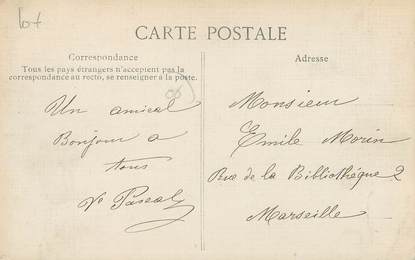 CARTE POSTALE
Correspondance
Tous les pays étrangers n'acceptent pas la
correspondance au recto, se renseigner à la poste.
Un amical
Bonjour a
tous
Ve Pascal
Adresse
Monsieur
Emile Morin
Rue de la Bibliothéque 2
Marseille